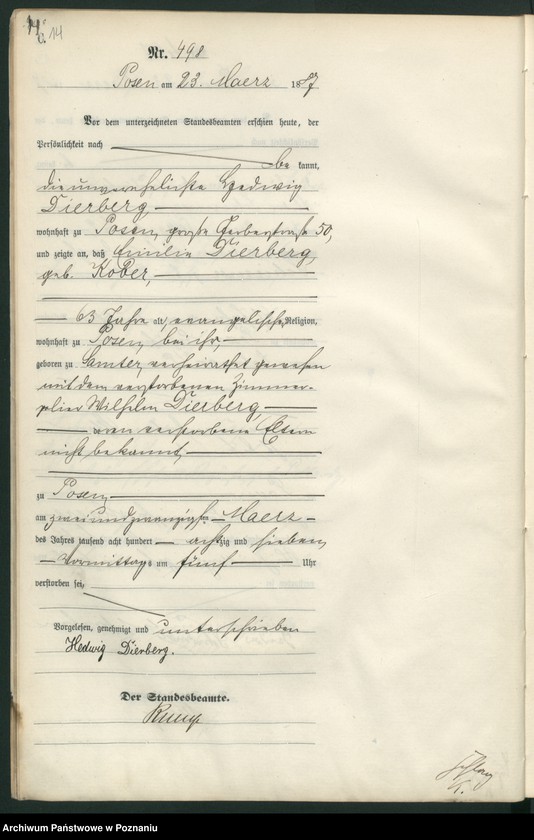 14
Nr. 498
Posen am 23. Maerz 1887
Vor dem unterzeichneten Standesbeamten erschien heute, der
Persönlichkeit nach
be kannt,
die unverehelichte Hedwig
Dierberg,
wohnhaft zu Posen, große Gerberstraße 50,
und zeigte an, daß Emilie Dierberg,
geb. Kober,
63 Jahre alt, evangelischer Religion,
wohnhaft zu Posen, bei ihr,
geboren zu Samter, verheirathet gewesen
mit dem verstorbenen Zimmer-
polier Wilhelm Dierberg,
verstorbene Eltern
nicht bekannt,
zu Posen,
am zweiundzwanzigsten Maerz
des Jahres tausend acht hundert achtzig und sieben,
Vormittags um fünf Uhr
verstorben sei,
Vorgelesen, genehmigt und unterschrieben
Hedwig Dierberg.
Der Standesbeamte.
Archiwum Państwowe w Poznaniu